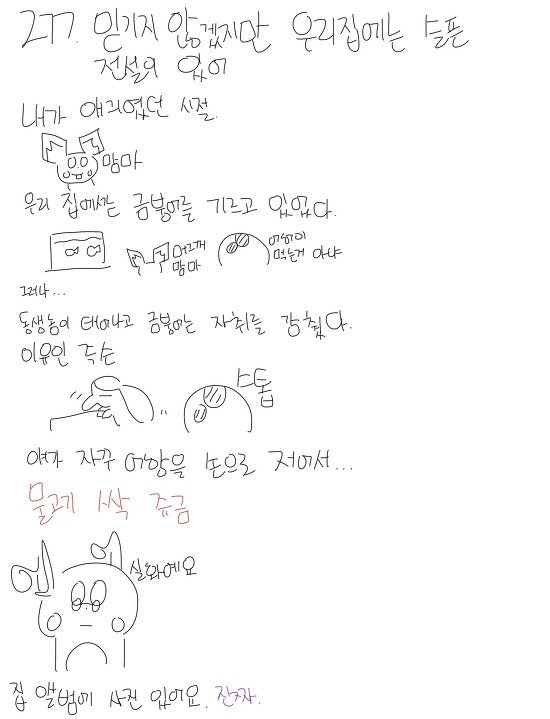 277. 믿기지 않겠지만 우리집에는 슬픈
전설의 있어
내가 애긔였던 시절.
맘마
우리 집에서는 금붕어를 기르고 있었다.
맘마
먹는거 아냐
그러나...
동생놈이 태어나고 금붕어는 자취를 감췄다.
이유인 즉슨
스톱
애가 자꾸 어항을 손으로 저어서...
물고기 싹 쥬금
실화예요
집 앨범에 사진 있어요. 진짜.